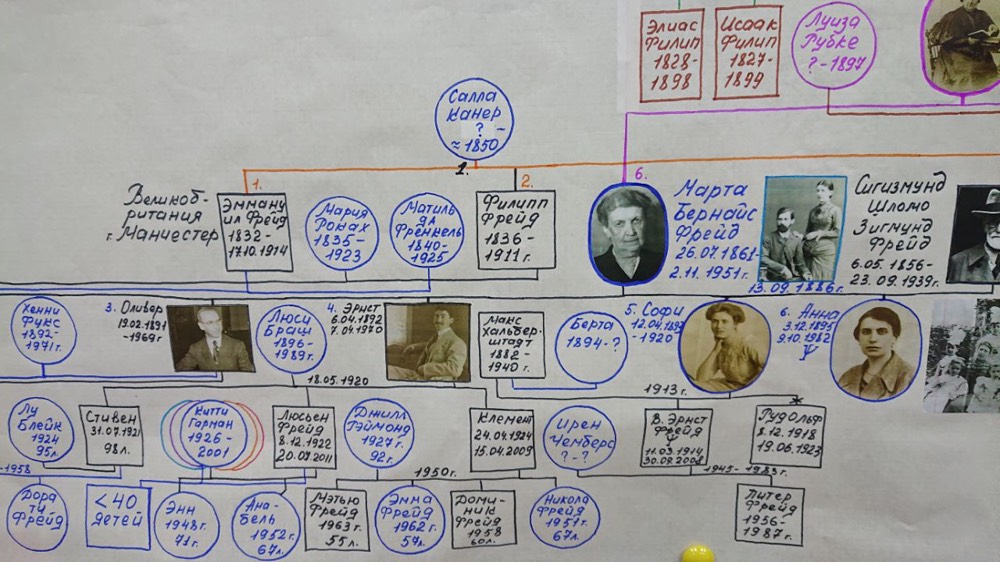 Элиас
Филип
1828-
1898
Исаак
Филип
1827-
1899
Луиза
Рубке
?-1897
Салла
Канер
?-
≈1850
1.
1.
2.
6.
Великоб-
ритания
г. Манчестер
Эмману
ил Фрейд
1832-
17.10.1914
Мария
Роках
1835-
1923
Матиль
да
Френкель
1840-
1925
Филипп
Фрейд
1836-
1911г.
Марта
Бернайс
Фрейд
26.07.1861-
2.11.1951г.
13.09.1886г.
Сигизмунд
Шломо
Зигмунд
Фрейд
6.05.1856-
23.09.1939г.
Хенни
Фукс
1892-
1971г.
3. Оливер
19.02.1891
-1969г
Люси
Браш
1896-
1989г.
4. Эрнст
6.04.1892
7.04.1970
Макс
Хальбер-
штадт
1882-
1940г.
Берта
1894-?
5. Софи
12.04.1893
-1920
6. Анна
3.12.1895
9.10.1982
Ψ
18.05.1920
1913г.
Лу
Блейк
1924
95л.
Стивен
31.07.1921
98л.
Китти
Гарман
1926-
2001
Люсьен
Фрейд
8.12.1922
20.07.2011
Джилл
Рэймонд
1927г.
92г.
Клемент
24.04.1924
15.04.2009
Ирен
Чемберс
?-?
В. Эрнст
Фрейд
Ψ
11.03.1914
30.09.2008
*
Рудольф
8.12.1918
19.06.1923
-1958
1950г.
1945-1983г.
Дора
ти
Фрейд
<40
детей
Энн
1948г.
71г.
Ана-
бель
1952г.
67л.
Мэтью
Фрейд
1963г.
55л.
Эмма
Фрейд
1962г.
57л.
Доми-
ник
Фрейд
1958
60л.
Никола
Фрейд
1951г.
67л.
Питер
Фрейд
1956-
1987г.